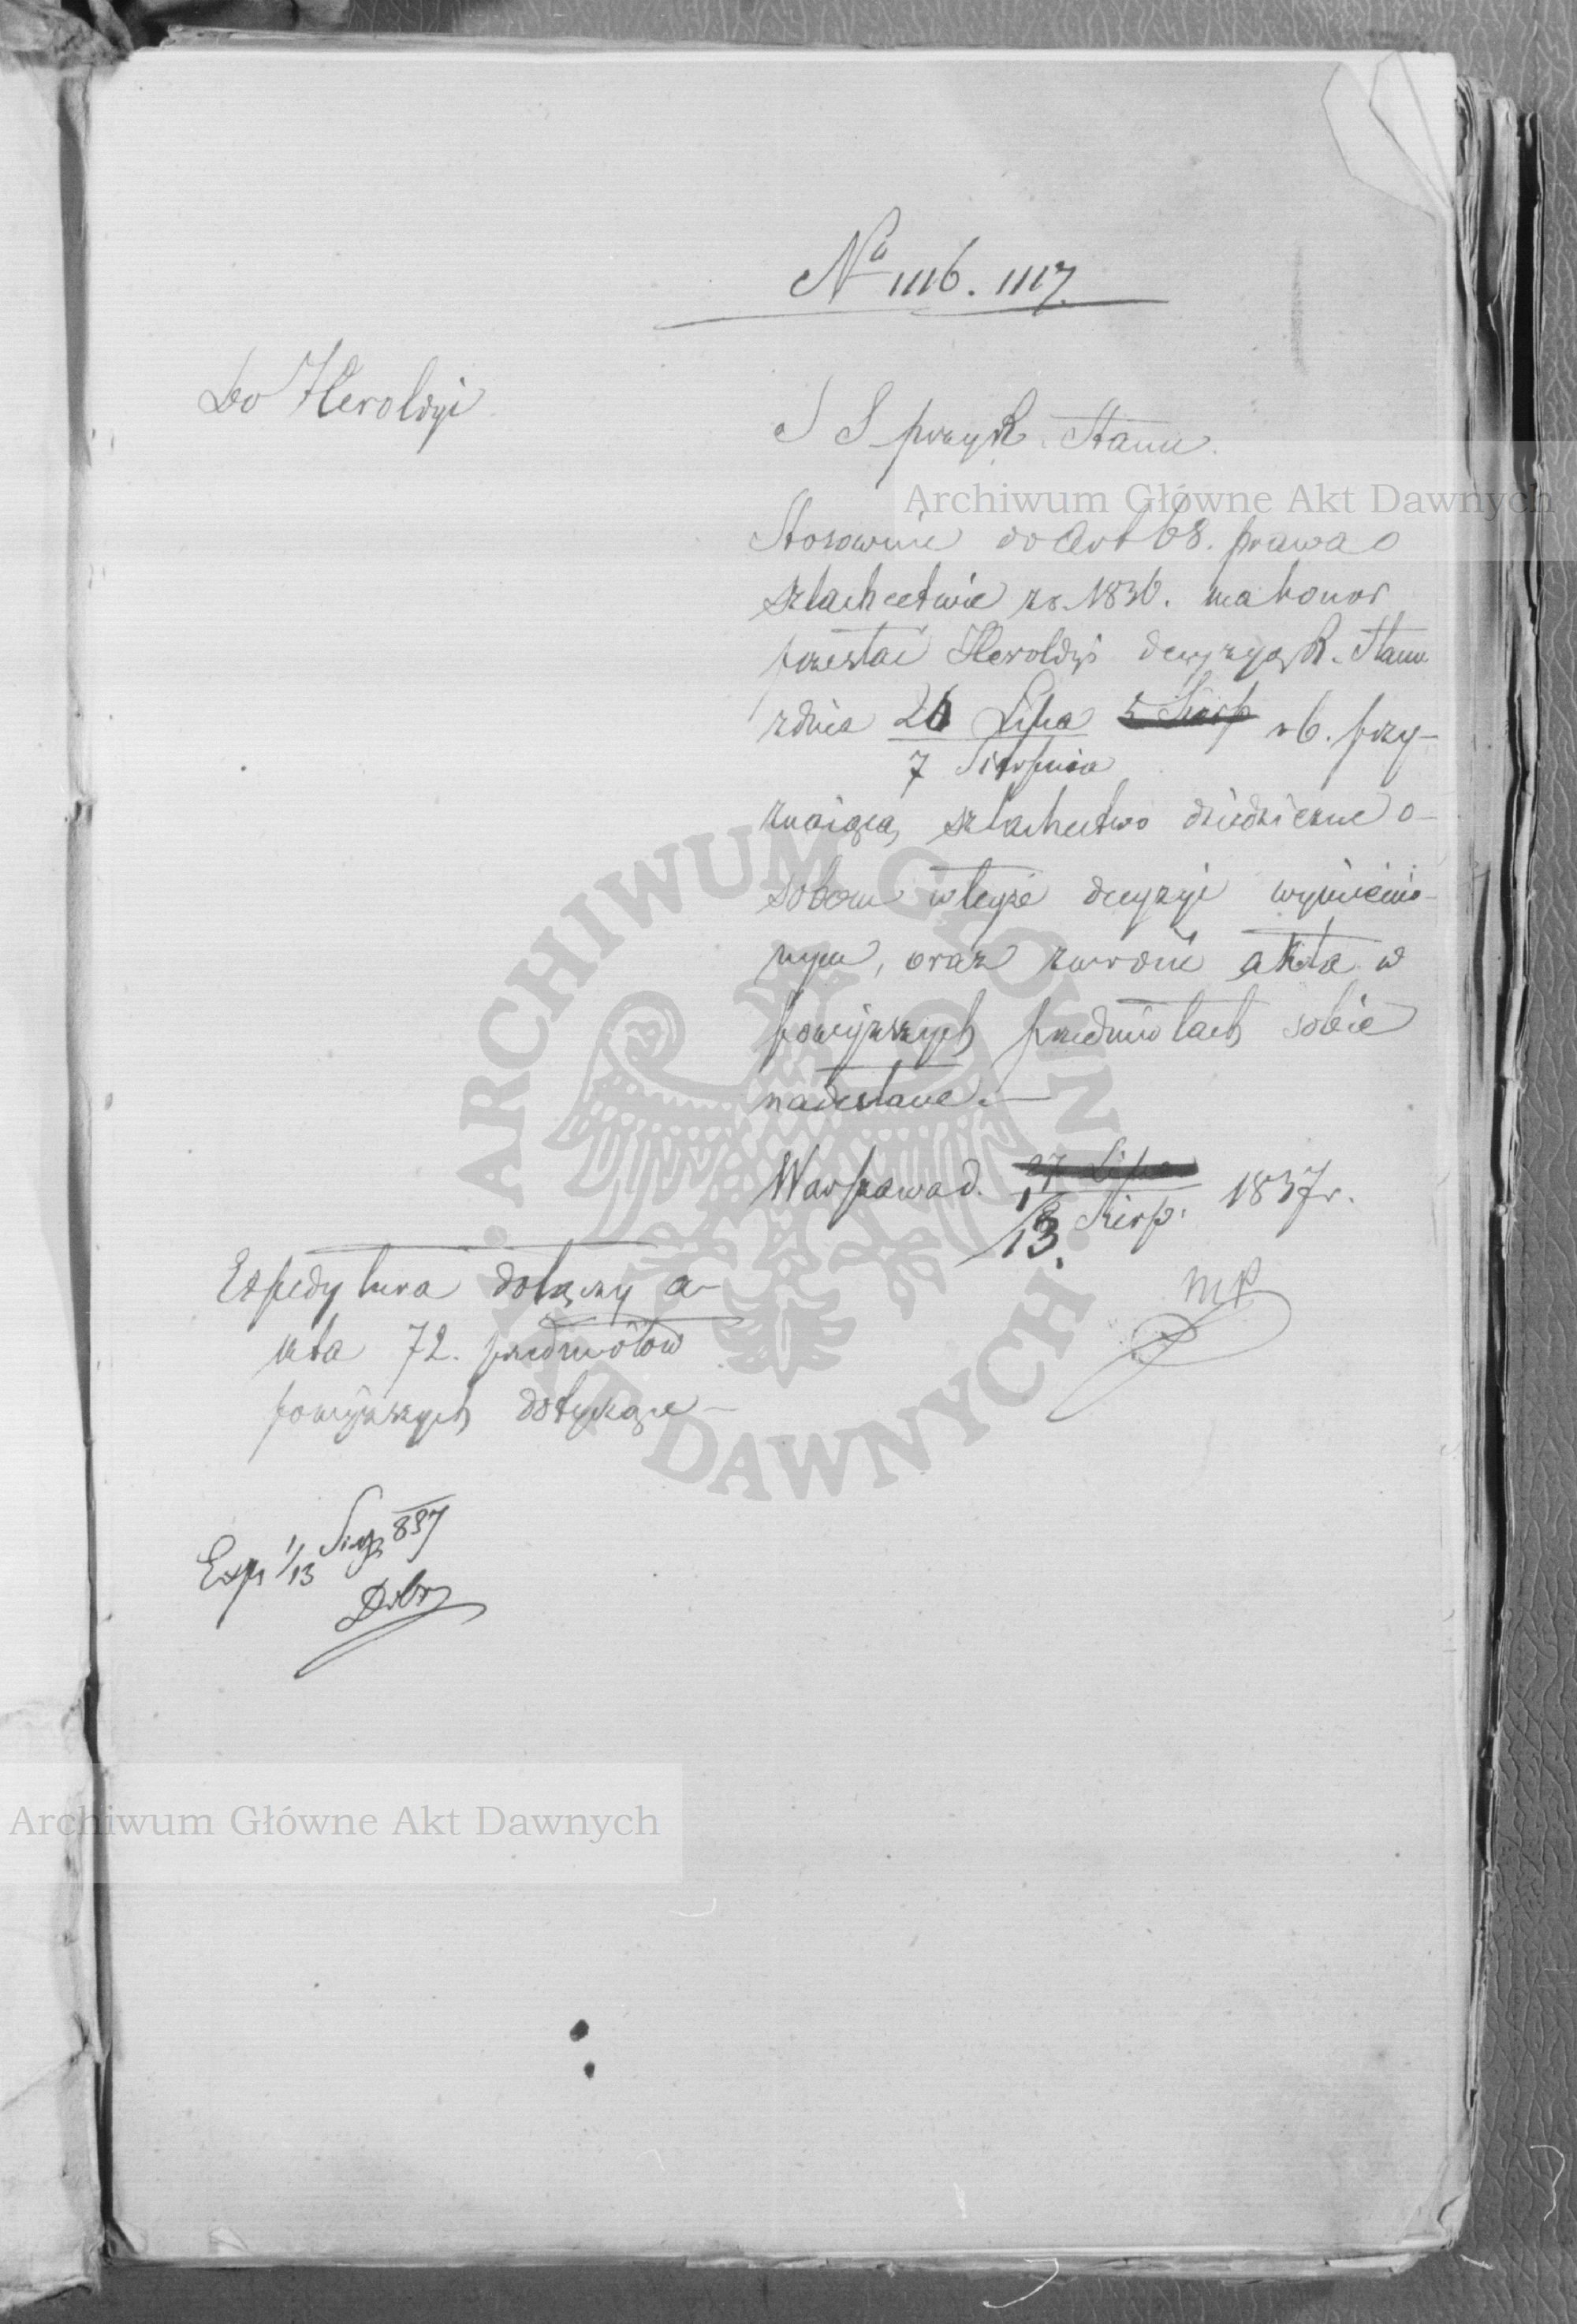 No 1116. 1117.
Do Heroldyi
S S przy R. Stanu.
Stosownie do Art 68. prawa o
szlachectwie z r. 1836. ma honor
przesłać Heroldyi decyzyą R. Stanu
z dnia 26 Lipca 5 Sierp r b. przy-
7 Sierpnia
znaiącą szlachectwo dziedziczne o-
sobom w teyże decyzyi wymienio-
nym, oraz zwrócić akta w
powyższych przedmiotach sobie
nadesłane.—
Warszawa d. 27 Lipca 1837 r.
1/13. Sierp.
Expedytura dołączy a-
kta 72. przedmiotów
powyższych dotyczące—
MP
Exp 1/13 Sierp 837
Archiwum Główne Akt Dawnych
Archiwum Główne Akt Dawnych
ARCHIWUM GŁÓWNE AKT DAWNYCH